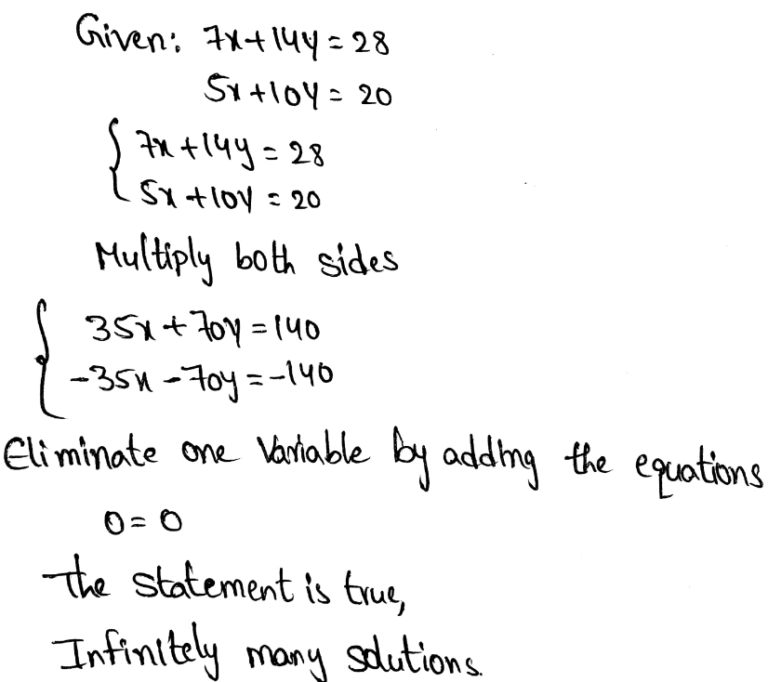 Given: 7x+14y=28
5x+10y=20
{ 7x+14y=28
5x+10y=20
Multiply both sides
{ 35x+70y=140
-35x-70y=-140
Eliminate one Variable by adding the equations
0=0
The statement is true,
Infinitely many solutions.